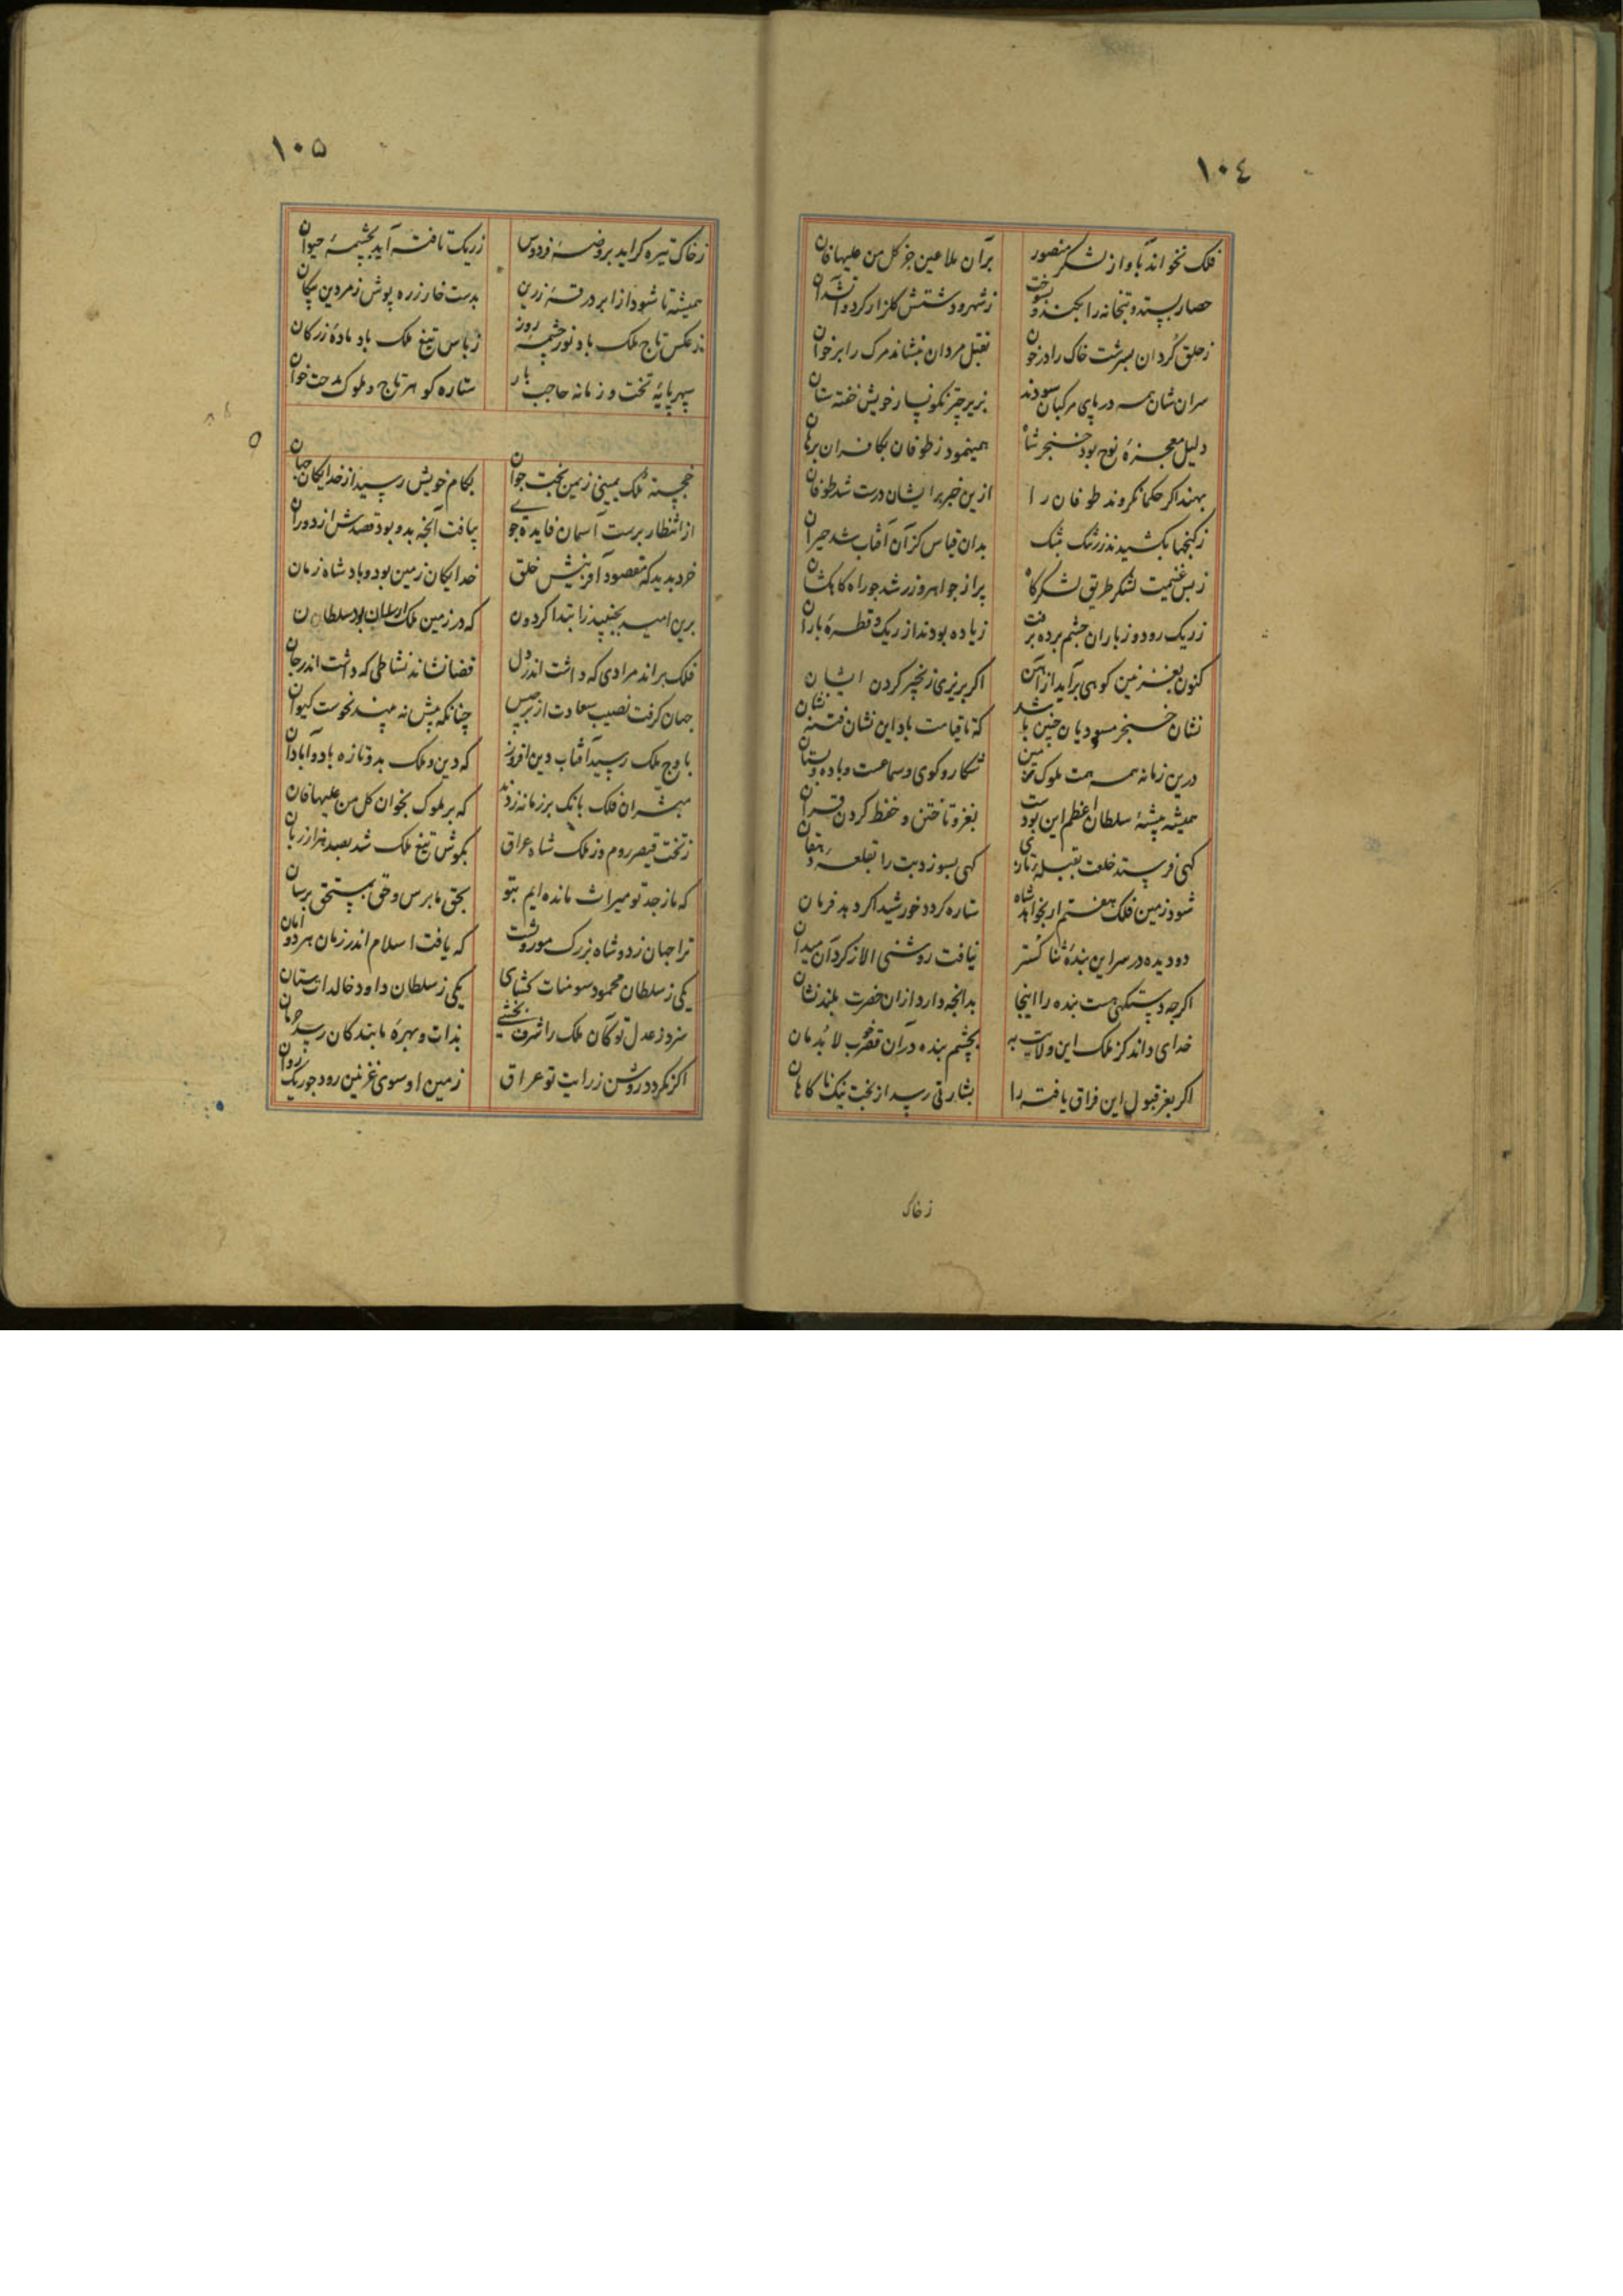 ١٠٤
فلک نخواند بآواز لشکر منصور برآن ملاعین جز کل من علیها فان
حصار بسته و بتخانه را بکند و بسوخت ز شهرود شتش گلزار کرد و
ز حلق گردان بسرشت خاک را در خون بقتل مردان بنشاند مرک را بر خوان
سران شان همه در پای مرکبان سودند بزیر چتر نگونسار خویش خفته ستان
دلیل معجزهٔ نوح بود خنجر شاه همینمود ز طوفان بکافران برهان
بهند اکر حکما نکروند طوفان را ازین خبر بر ایشان درست شد طوفان
ز کنجها بکشیدند زر تنک تنک بدان قیاس کز آن آفتاب شد حیران
ز بس غنیمت لشکر طریق لشکرکاه پر از جواهر و زر شد چو راه کاهکشان
ز ریک رود و ز باران چشم برده برفت زیاده بودند از ریک و قطرهٔ باران
کنون بغزنین کوهی برآید از آهن اکر بریزی زنجیر کردن ایشان
نشان خنجر مسعودیان چنین باشد که تا قیامت باد این نشان فتنه نشان
درین زمانه همه همت ملوک زمین شکار و کوی و سماعست و باده و بستان
همیشه پیشهٔ سلطان اعظم این بودست بغزو تاختن و حفظ کردن قرآن
کهی فرستد خلعت بقبلهٔ تازی کهی بسوزد بت را بقلعهٔ دهقان
شود زمین فلک هفتم ار بخواهد شاه ستاره کردد خورشید اکر دهد فرمان
دو دیده در سر این بندهٔ ثنا کستر نیافت روشنی الا ز کرد آن میدان
اکرچه دستکهی هست بنده را اینجا بدانچه دارد از آن حضرت بلند نشان
خدای داند کز ملک این ولایت به بچشم بنده در آن قصر قرب لابدمان
اکر بعز قبول این فراق یافته را بشارتی رسد از بخت نیک ناکاهان
ز خاک
١٠٥
ز خاک تیره کراید بروضهٔ فردوس ز ریک تافته آید بچشمهٔ حیوان
همیشه تا شود از ابر درقهٔ زرین بدست خار زره پوش زمردین پیکان
ز عکس تاج ملک باد نور چشمهٔ روز ز باس تیغ ملک باد مادهٔ زرکان
سپهر پایهٔ تخت و زمانه حاجب بار ستاره کوهر تاج و ملوک مدحت خوان
خجسته ملک یمینی زمین بخت جوان بکام خویش رسید از خدایکان جهان
از انتظار برست آسمان فایده جوی بیافت آنچه بدو بود قصدش از دوران
خرد بدید که مقصود آفرینش خلق خدایکان زمین بود و بادشاه زمان
برین امید بجنبید ز ابتدا کردون که در زمین ملک ارسلان بود سلطان
فلک براند مرادی که داشت اندر دل قضا نشاند نشاطی که داشت اندر جان
جهان کرفت نصیب سعادت از برجیس چنانکه بیش نه بیند نحوست کیوان
باوج ملک رسید آفتاب دین افروز که دین و ملک بدو تازه باد و آبادان
مبشران فلک بانک بر زمانه زدند که بر ملوک بخوان کل من علیها فان
ز تخت قیصر روم و ز ملک شاه عراق بکوش تیغ ملک شد بصد هزار زبان
که ما ز جد تو میراث مانده ایم بتو بحق ما برس و حق بمستحق برسان
ترا جهان ز دو شاه بزرک موروثست که یافت اسلام اندر زمان هر دو امان
یکی ز سلطان محمود سومنات کشای یکی ز سلطان داود خالدات ستان
سزد ز عدل تو کان ملک را شرف بخشی بذات و بهرهٔ ما بندکان رسد حرمان
اکر نکردد روشن ز رایت تو عراق زمین او سوی غزنین رود چو ریک روان